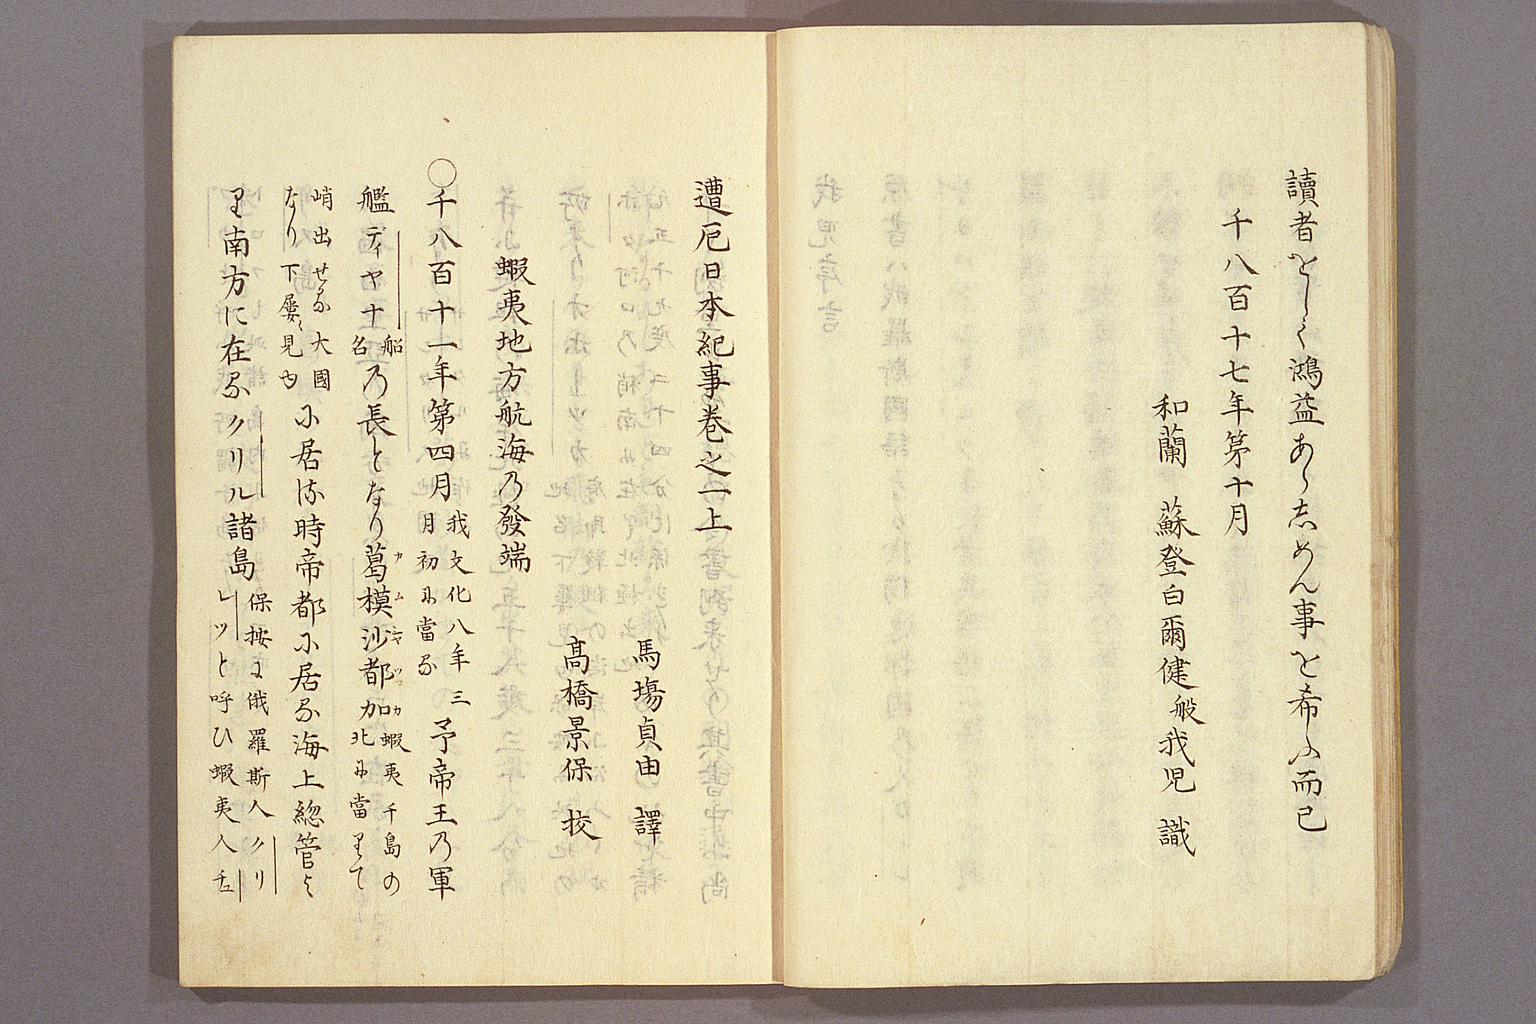 讀者をして鴻益あらしめん事を希ふ而已
千八百十七年第十月
和蘭 蘇登白爾健般我児 識
遭厄日本紀事巻之一上
馬場貞由 譯
高橋景保 挍
蝦夷地方航海乃發端
〇千八百十一年第四月我文化八年三月初に當る予帝王乃軍
艦ディヤナ船名乃長となり葛模沙都加蝦夷千島の北に當りて
峭出せる大國なり下屡〻見ゆに居す時帝都に居る海上総管よ
り南方に在るクリル諸島保按に俄羅斯人クリヒッと呼ひ蝦夷人チュ
カムシヤツカ